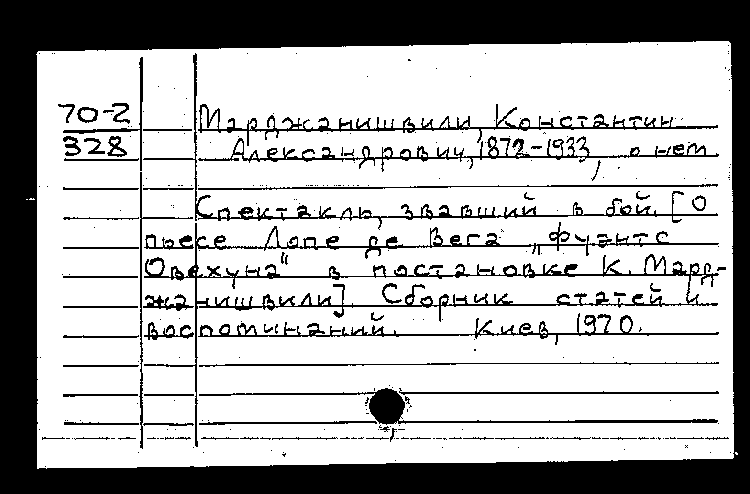 70-2
328
Марджанишвили, Константин
Александрович, 1872-1933, о нем
Спектакль, звавший в бой. [О
пьесе Лопе де Вега „Фуэнте
Овехуна" в постановке К. Мард-
жанишвили]. Сборник статей и
воспоминаний. Киев, 1970.